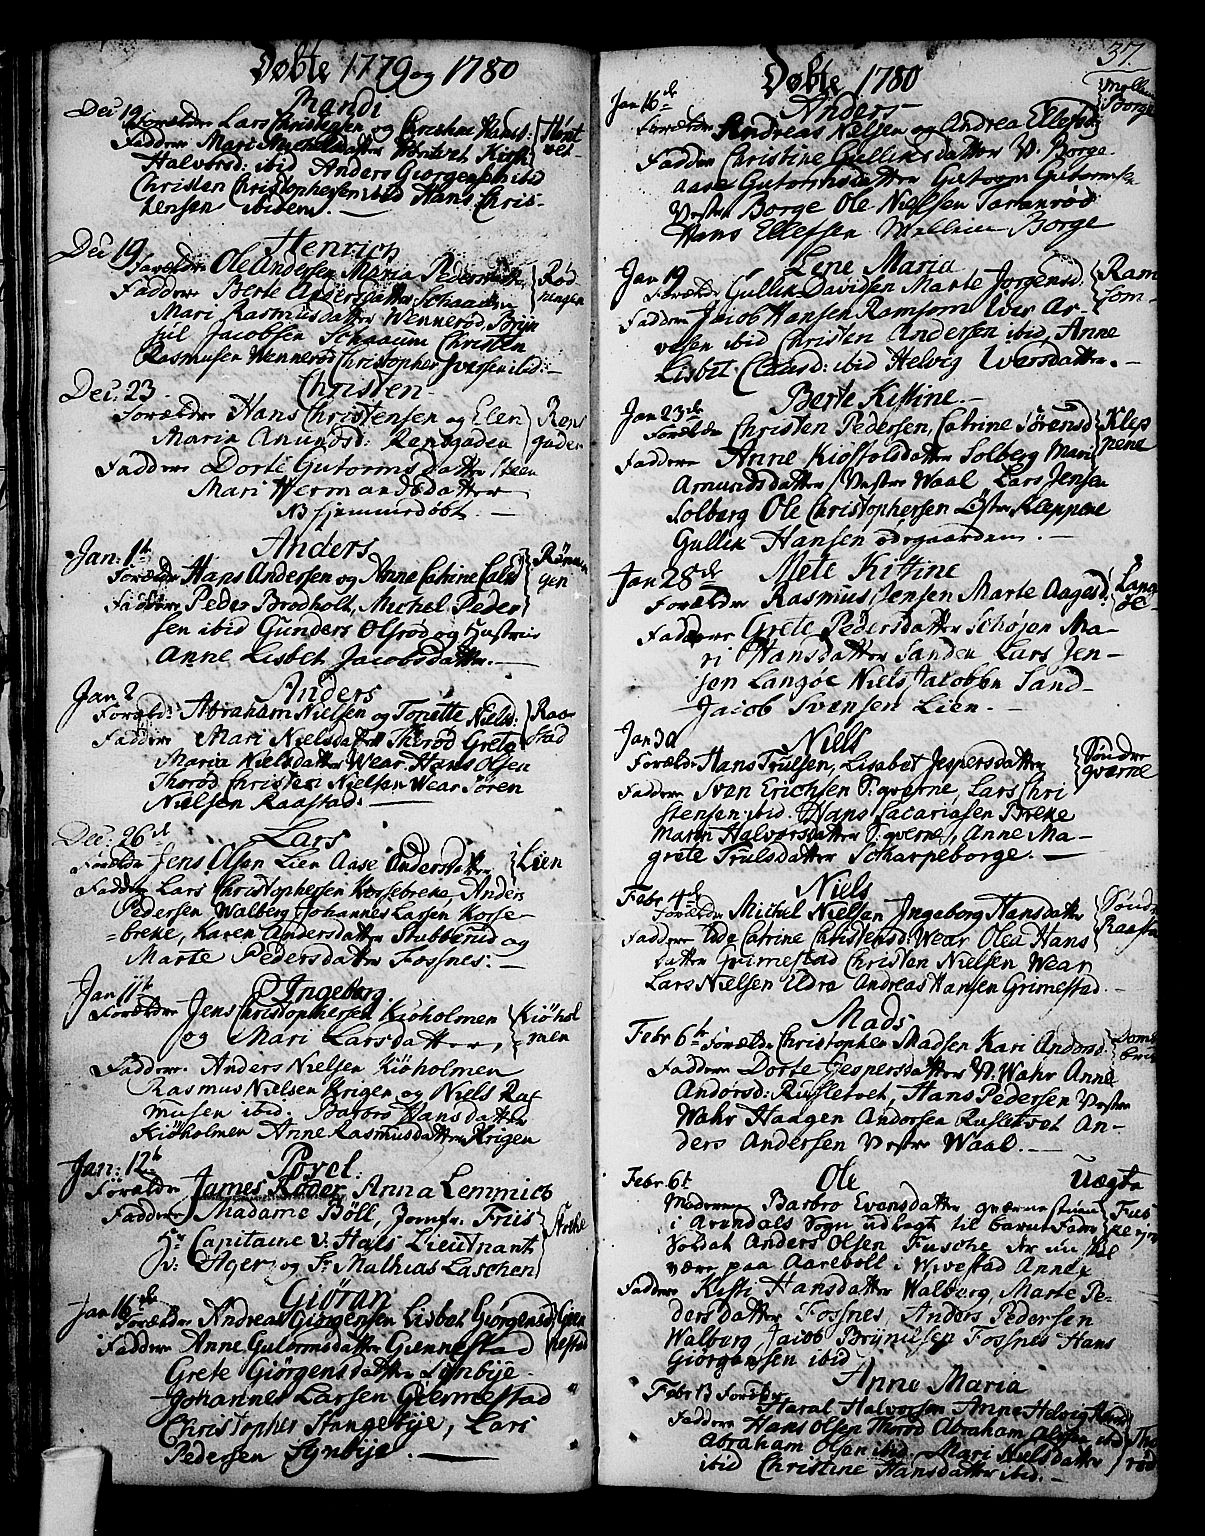 Døbte 1779 og 1780
Dec 19 Randi
Forældre Lars Christensen og Christine Hansd:
Faddere Mari Michelsdatter Kirsti
Halvorsd: ibid Anders Giorgensen ibid
Christen Christophersen ibid Hans Chris-
tensen ibidem. —
Dec 19 Henrich
Forældre Ole Andersen Maria Pedersdatter Rød-
Faddere Berte Andersdatter Schaauen ningen
Mari Rasmusdatter Wennerød, Bryn
jul Jacobsen Schaaum Christen
Rasmusen Wennerød Christopher Iversen ibid: —
Dec: 23 Christen
Forældre Hans Christensen og Elen
Maria Amundsd: Rensgaden gaden
Faddere Dorte Gutormsdatter Steen
Mari Hermandsdatter
NB hjemmedøbt. —
Jan: 1te Anders
Forældre Hans Andersen og Anne Catrine Rønnin-
Faddere Peder Brodholt, Michel Peder gen
sen ibid Gunders Olsrød og Hustrue
Anne Lisbet Jacobsdatter. —
Jan 2 Anders
Foræld: Abraham Nielsen og Torette Niels: Raa-
Faddere Mari Nielsdatter Therød Grete stad
Maria Nielsdatter Wear Hans Olsen
Thorød Christen Nielsen Wear Sören
Nielsen Raastad. —
Dec: 26de Lars
Forældre Jens Olsen Lien Aase Andersdatter Lien
Faddere Lars Christophersen Korsebreke, Anders
Pedersen Walberg Johannes Larsen Korse-
=breke, Karen Andersdatter Stubberud og
Marte Pedersdatter Fossnes. —
Jan 11te Ingeborg
Forældre Jens Christophersen Kiøholmen Kiøhol
og Mari Larsdatter, men
Faddere. Anders Nielsen Kiøholmen
Rasmus Nielsen Krigen og Niels Ras
musen ibid. Barbro Hansdatter
Kiøholmen Anne Rasmusdatter Krigen
Jan: 12te Povel.
Forældre James Røder, Anna Lemmich
Faddere Madame Böll, Jomfr. Friis
Hr Capitaine v: Hals Lieutnant
v: Ager, og Sr Mathias Laschen
Jan 16de Giøran
Forældre Andreas Giörgensen Lisbet Giörgensd: Gien
Faddere Anne Gutormsdatter Giennestad nestad
Grete Giörgensdatter Lønbye
Johannes Larsen Giennestad
Christopher Stangebye, Lars
Pedersen Synbye. —
37.
Døbte 1780
Jan 16de Anders Mellum
Borge
Forældre Andreas Nielsen og Andrea Ellefsd:
Faddere Christine Gulliksdatter V. Borge
Aase Gutormsdatter Gutorm Gutormsen
Vester Borge Ole Nielsen Tortenrød
Hans Ellefsen Mellum Borge
Jan 19 Lene Maria
Forældre Gullik Davidsen Marte Jorgensd: Ram
Faddere Jacob Hansen Ramsom Iver Ar- som-
vesen ibid Christen Andersen ibid, Anne
Lisbet Claasd: ibid Helvig Iversdatter. —
Jan 23de Berte Kistine. —
Forældre Christen Pedersen, Catrine Sörensd Klep
Faddere Anne Kiøstolsdatter Solberg Mari pene
Amundsdatter Vester Waal Lars Jensen
Solberg Ole Christophersen Øster Kleppene
Gullik Hansen ødegaarden. —
Jan 28de Mete Kistine
Forældre Rasmus Jensen Marte Aagesd: Lang
Faddere Grete Pedersdatter Schøjen Ma- øe
ri Hansdatter Sanden Lars Jen-
sen Langøe Niels Jacobsen Sand-
Jacob Svensen Lien. —
Jan 30 Niels
Forældre Hans Trulsen, Lisabet Jespersdatter Søndre
Faddere Sven Erichsen S: qverne, Lars Chri qverne
stensen ibid. Hans Sacariasen Breke
Maren Halvorsdatter S: qverne, Anne Ma-
grete Trulsdatter Scharpeborge. —
Febr 4de Niels
Forældre Michel Nielsen Ingeborg Hansdatter Sønd
Faddere Ide Catrine Christensd: Wear Olea Hans Raastad
datter Grimestad Christen Nielsen Wear
Lars Nielsen Edra Andreas Hansen Grimestad
Mads
Febr 6te Forældre Christopher Madsen Kari Andorsd:
Faddere Dorte Jespersdatter V: Wahr Anne
Andorsd: Rusletvet, Hans Pedersen Vester
Wahr Haagen Andorsen Rusletvet An-
ders Andersen Vester Waal. —
Febr 6t Ole Uægte
Moderen Barbro Evensdatter qvernestuen
i Arendals Sogn udlagt til barne Fader
Soldat Anders Olsen Fusche der nu skal
være paa Aarebolt i Wivestad Annex
Faddere Kisti Hansdatter Walberg, Marte Pe-
dersdatter Fossnes, Anders Pedersen
Walberg Jacob Brynielsen Fossnes Hans
Giörgensen ibid
Anne Maria
Febr 13 Forældre
Haral Halvorsen Anne Helvig
Faddere Hans Olsen Thorød Abraham Olsen ibid
Abraham Olsen ibid. Mari Nielsdatter rød
ibid Christine Hansdatter ibid. —